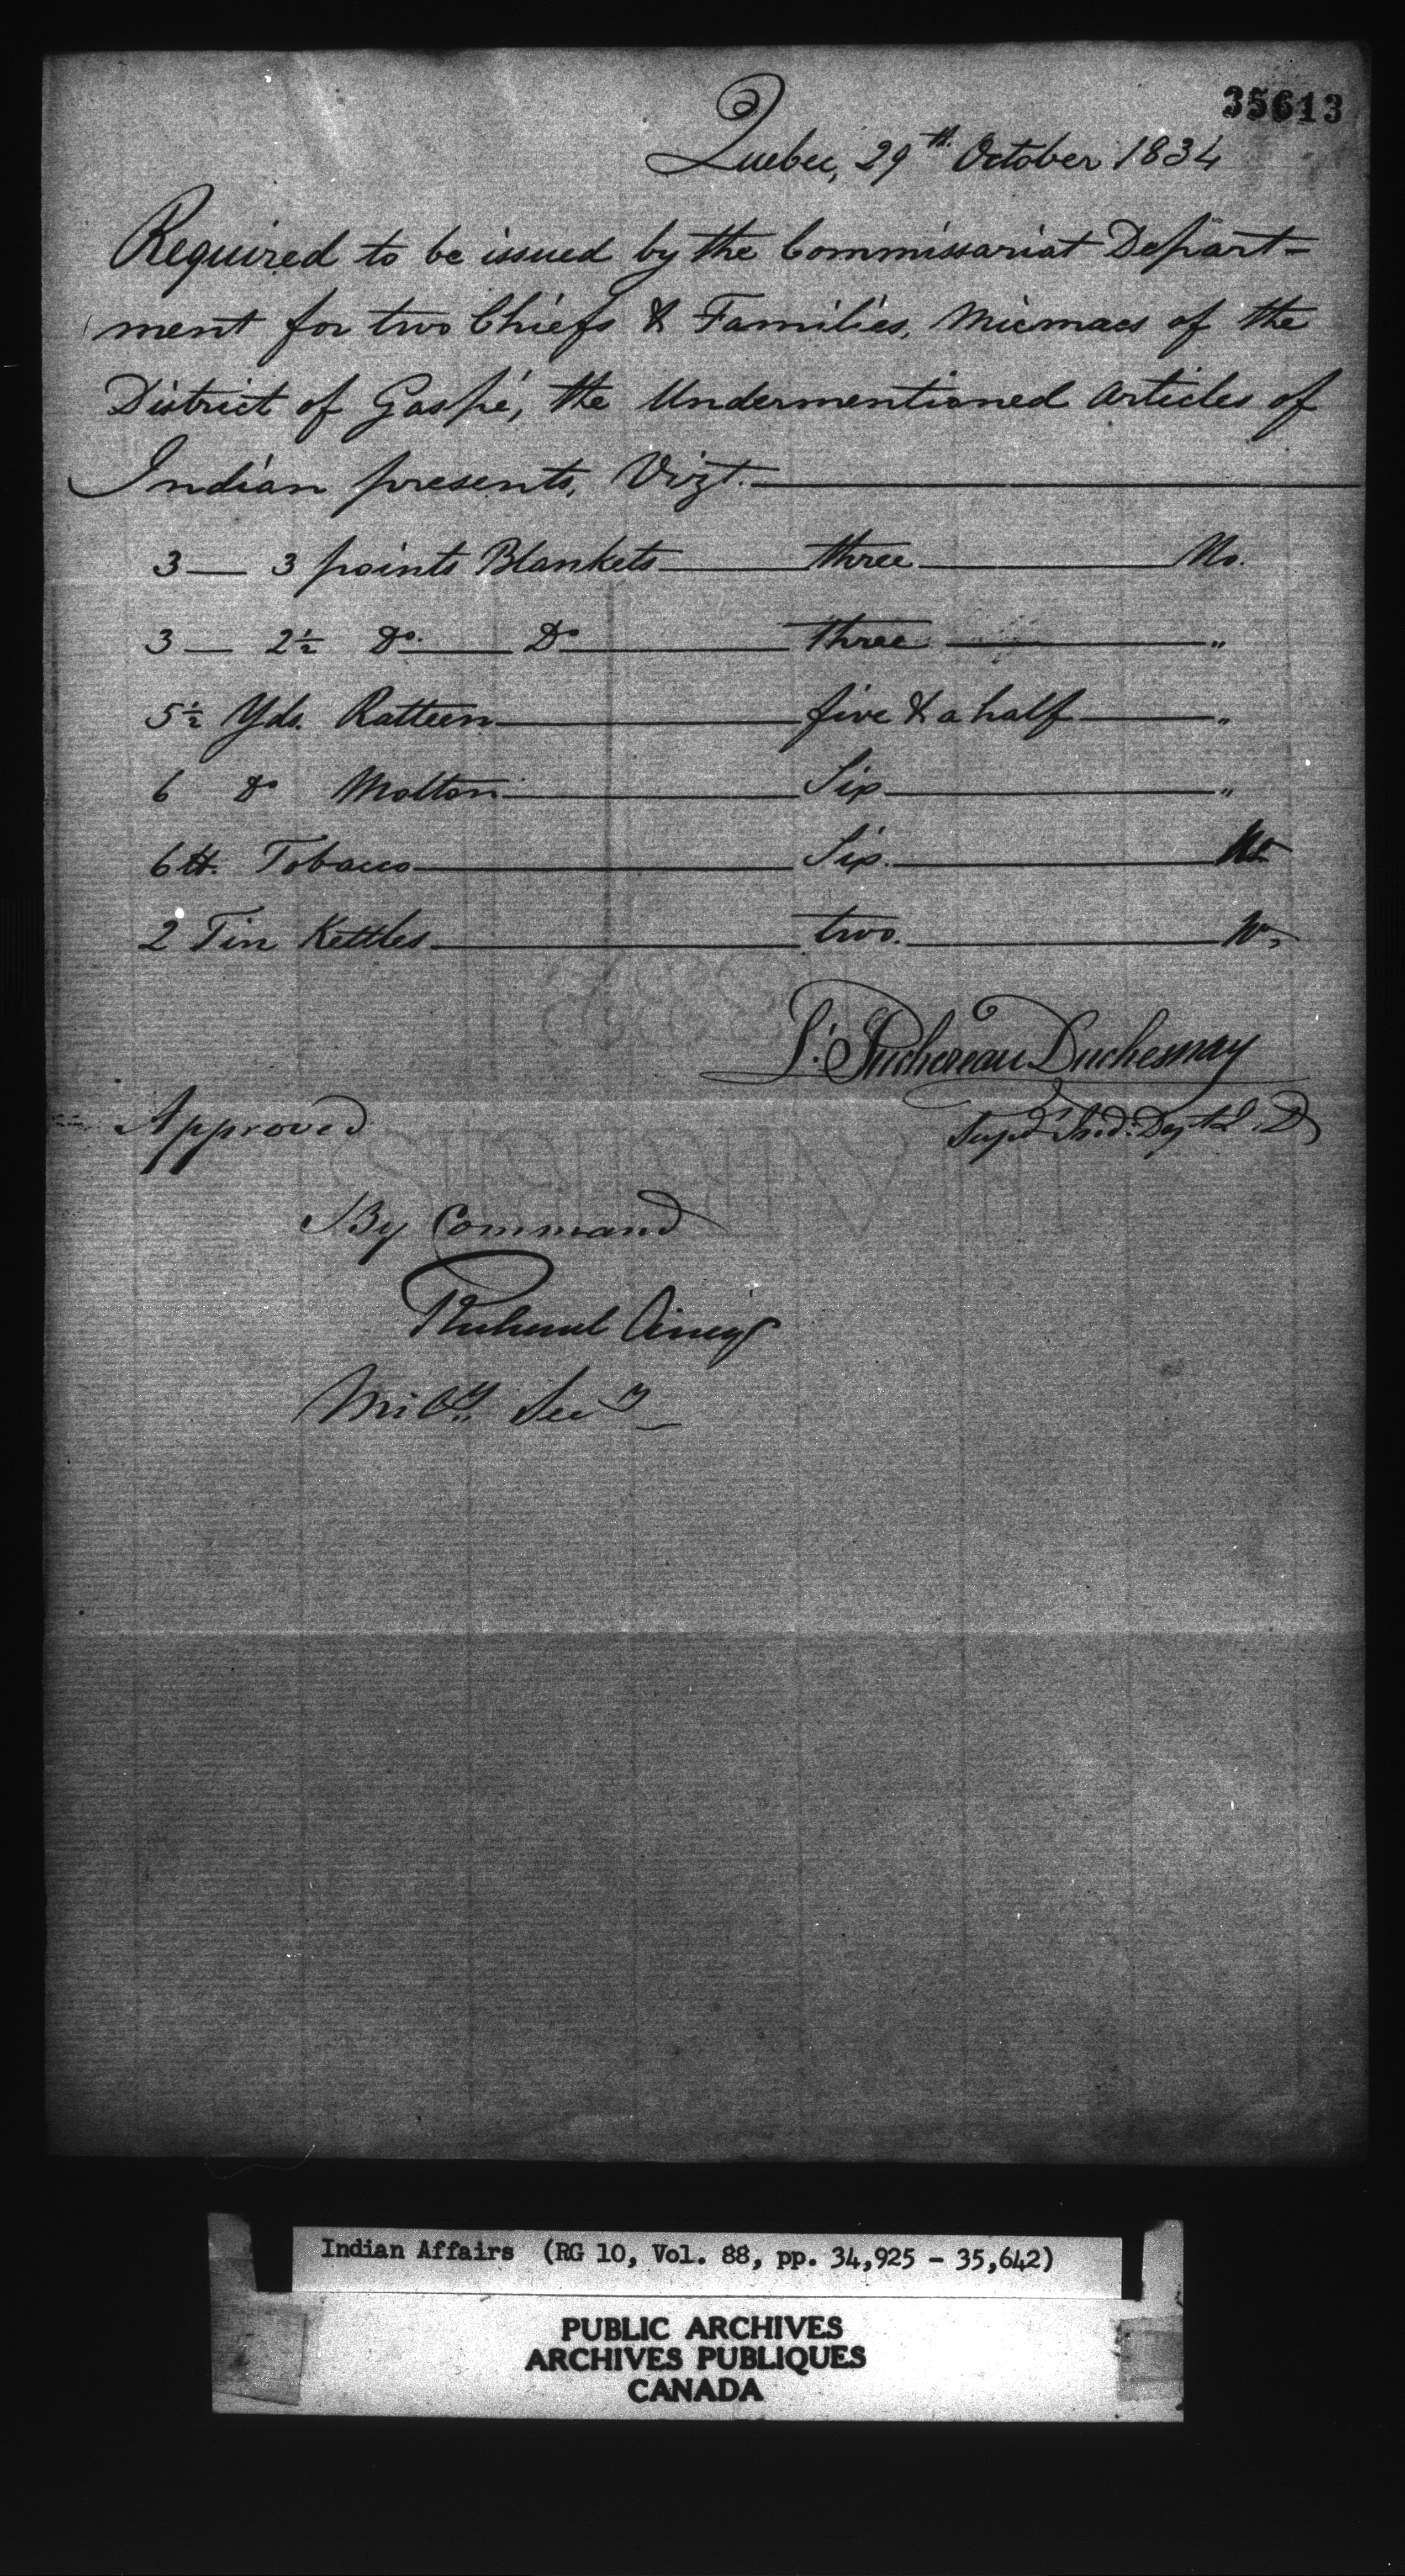 35613
Quebec, 29th. October 1834
Required to be issued by the Commissariat Depart=
ment for two Chiefs & Families, Micmacs of the
District of Gaspé, the Undermentioned articles of
Indian presents, Vizt.
3 — 3 points Blankets — three — No.
3 — 2½ Do. — Do — three — "
5½ Yds. Ratteen — five & a half — "
6 Do Molton — Six — "
6 lb. Tobacco — Six.
2 Tin Kettles — two. — No
L. Juchereau Duchesnay
Supd. Ind: Dept L. D
Approved
By Command
Mily. Secy
Indian Affairs (RG 10, Vol. 88, pp. 34,925 - 35,642)
PUBLIC ARCHIVES
ARCHIVES PUBLIQUES
CANADA